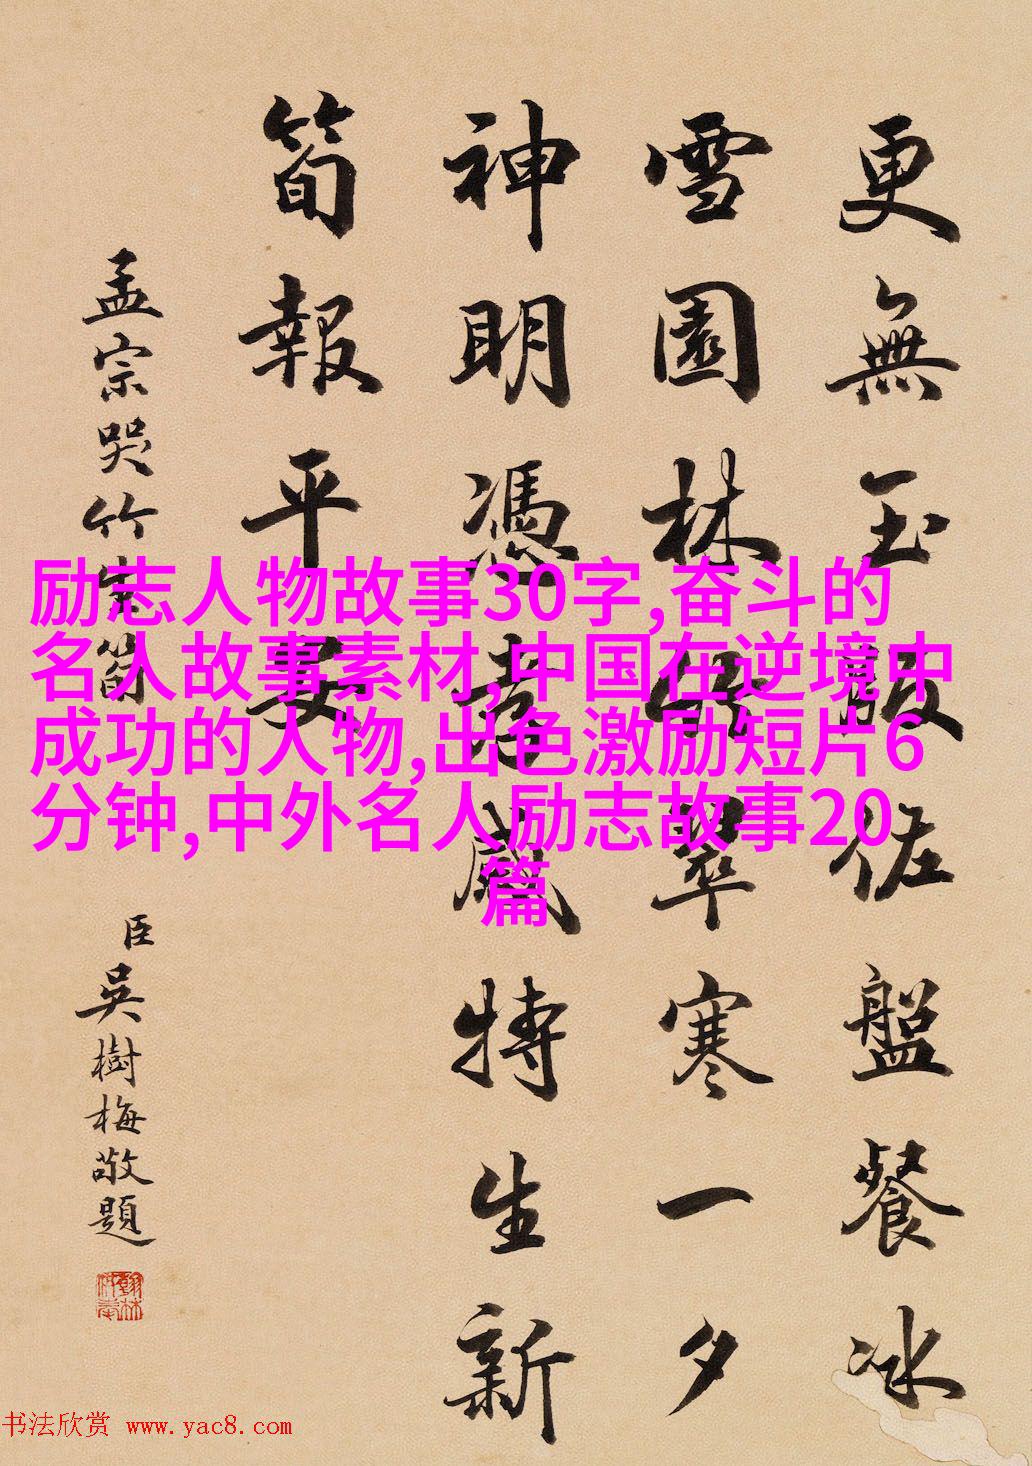 更無玉版佐盤餐冰
雪園林翠寒一夕
神明憑孝感特生新
筍報平安
孟宗哭竹生筍
臣吳樹梅敬題
励志人物故事30字,奋斗的
名人故事素材,中国在逆境中
成功的人物,出色激励短片6
分钟,中外名人励志故事20
篇
书法欣赏 www.yac8.com